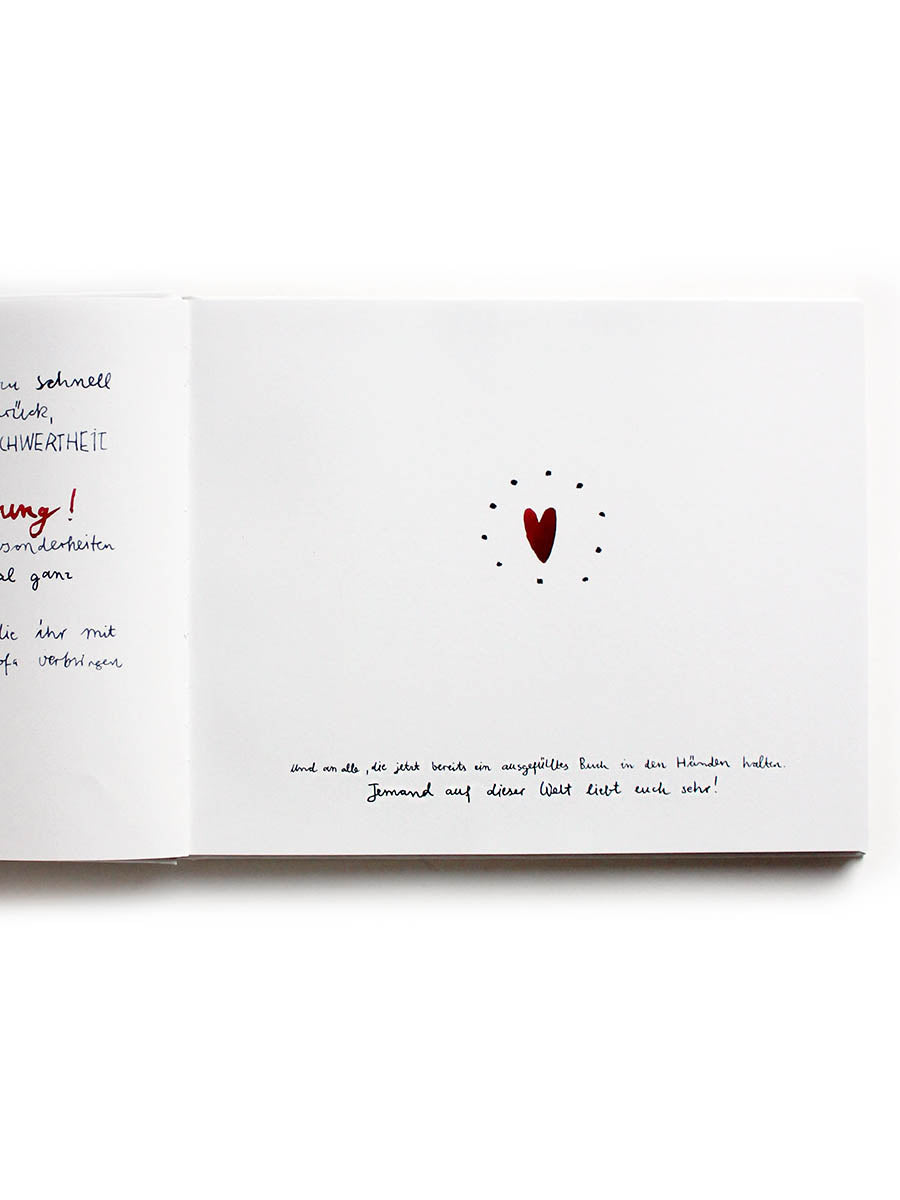 zu schnell
rück,
CHWERTHEIT
ung!
sonderheiten
al ganz
die ihr mit
ofa verbringen
Und an alle, die jetzt bereits ein ausgefülltes Buch in den Händen halten.
Jemand auf dieser Welt liebt euch sehr!